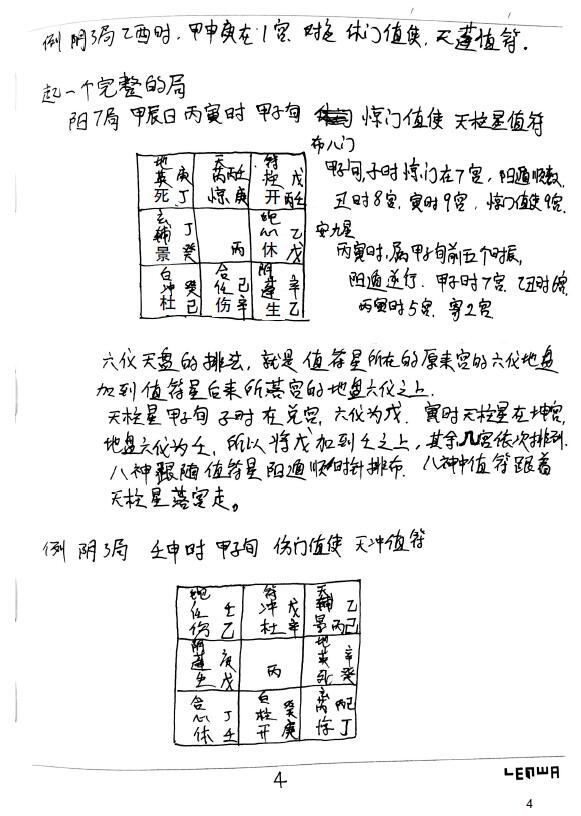 例 阴3局 乙酉时，甲申庚在1宫，时定 休门值使，天蓬值符。
起一个完整的局
阳7局 甲辰日 丙寅时 甲子旬 惊门值使 天柱星值符
布八门
甲子旬，子时惊门在7宫，阳遁顺数
丑时8宫，寅时9宫，惊门值使9宫
安九星
丙寅时，属甲子旬前五个时辰，
阳遁逆行，甲子时7宫，乙丑时6宫，
丙寅时5宫，寄2宫
地 天 符
英 庚 芮 丙壬 柱 戊
死 丁 惊 庚 开 丙壬
玄 蛇
辅 丁 心 乙
景 癸 丙 休 戊
白 合 阴
冲 癸 任 己 蓬 辛
杜 己 伤 辛 生 乙
六仪天盘的排法，就是值符星所在的原来宫的六仪地盘
加到值符星后来所落宫的地盘六仪之上。
天柱星甲子旬子时在兑宫，六仪为戊。寅时天柱星在坤宫，
地盘六仪为壬，所以将戊加到壬之上，其余几宫依次排列
八神跟随值符星阳遁顺时针排布，八神中值符跟着
天柱星落宫走。
例 阴3局 壬申时 甲子旬 伤门值使 天冲值符
蛇 符 天
任 壬 冲 戊 辅 乙
伤 乙 杜 辛 景 丙己
阴 地
蓬 庚 英 辛
生 戊 丙 死 癸
合 白 玄
心 丁 柱 癸 芮 丙己
休 壬 开 庚 惊 丁
4
LENWA
4